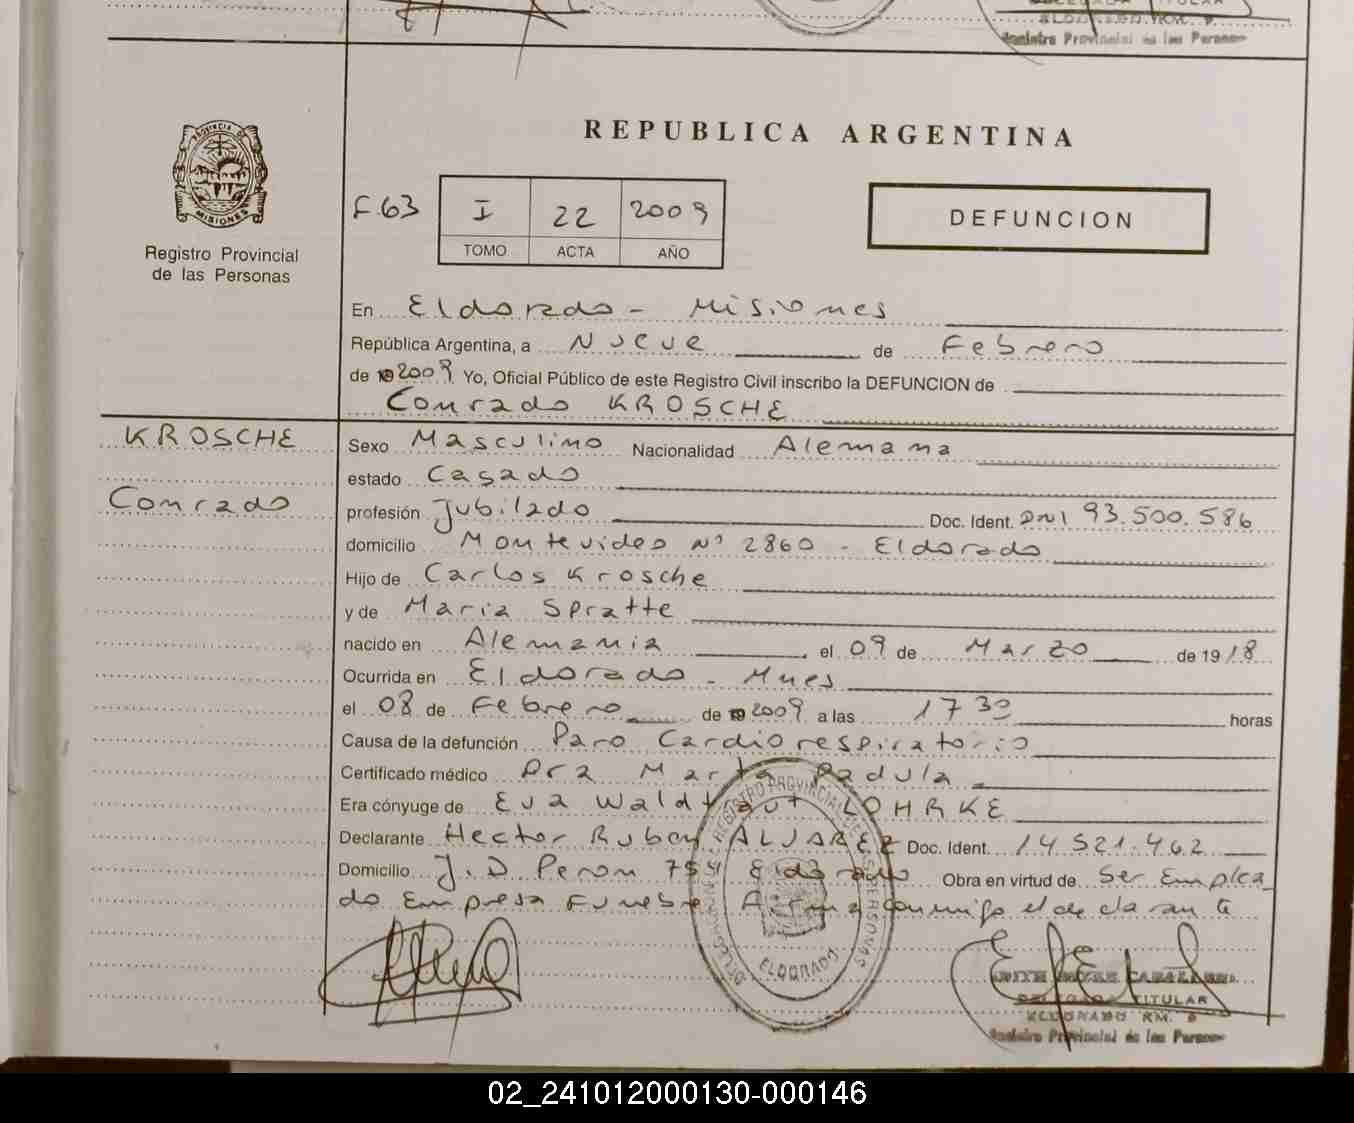 REPUBLICA ARGENTINA
PROVINCIA DE
MISIONES
Registro Provincial
de las Personas
F.63
I 22 2009
TOMO ACTA AÑO
DEFUNCION
En Eldorado - Misiones
República Argentina, a Nueve de Febrero
de 2009 Yo, Oficial Público de este Registro Civil inscribo la DEFUNCION de
Conrado KROSCHE
KROSCHE
Conrado
Sexo Masculino Nacionalidad Alemana
estado Casado
profesión Jubilado Doc. Ident. DNI 93.500.586
domicilio Montevideo Nº 2860 - Eldorado
Hijo de Carlos Krosche
y de Maria Spratte
nacido en Alemania el 09 de Marzo de 1918
Ocurrida en Eldorado - Mnes
el 08 de Febrero de 2009 a las 1730 horas
Causa de la defunción Paro Cardiorespiratorio
Certificado médico Dra Marta Padula
Era cónyuge de Eva Waldtraut LOHRKE
Declarante Hector Ruben ALVAREZ Doc. Ident. 14.521.462
Domicilio J.D Peron 754 Eldorado Obra en virtud de Ser Emplea
do Empresa Funebre Firma conmigo el declarante
ELDORADO
TITULAR
ELDORADO KM. 9
Registro Provincial de las Personas
02_241012000130-000146